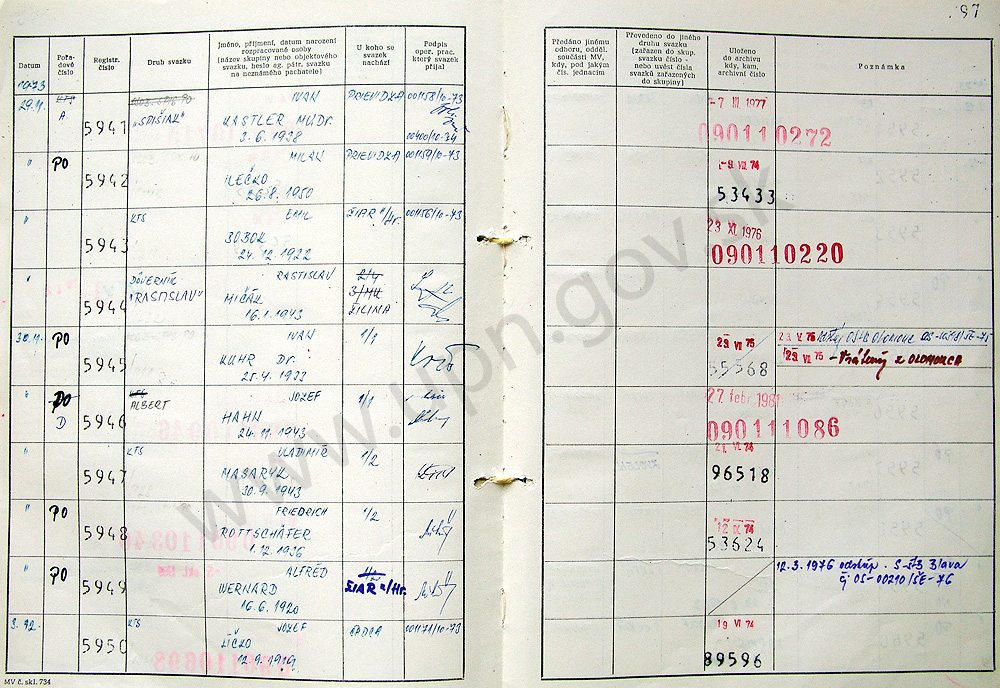 97
Datum
Pořa-
dové
číslo
Registr.
číslo
Druh svazku
Jméno, příjmení, datum narození
rozpracované osoby
(název skupiny nebo objektového
svazku, heslo ag. pátr. svazku
na neznámého pachatele)
U koho se
svazek
nachází
Podpis
oper. prac.
který svazek
přijal
Předáno jinému
odboru, odděl.
součásti MV,
kdy, pod jakým
čís. jednacím
Převedeno do jiného
druhu svazku
(zařazen do skup.
svazku číslo -
nebo uvést čísla
svazků zařazených
do skupiny)
Uloženo
do archivu
kdy, kam,
archivní číslo
Poznámka
1973
29.11.
A.
5941
"SPIŠIAK"
IVAN
KASTLER MUDr.
3.6.1938
PRIEVIDZA
001158/10-73
00400/10-74
-7 III 1977
090110272
"
PO
5942
MILAN
26.8.1950
PRIEVIDZA
001159/10-73
-9 VII 74
53433
"
5943
KTS
EMIL
BOBOK
24.12.1922
ŽIAR n/Hr.
001156/10-73
23 XI. 1976
090110220
"
5944
DÔVERNÍK
"RASTISLAV"
RASTISLAV
MIČÁK
16.1.1943
ŽILINA
30.11.
PO
5945
IVAN
KUHR Dr.
25.4.1933
1/1
23 VI 75
55568
23 VI 75
- Vrátený z OLOMOUCA
"
PO
D
5946
ALBERT
JOZEF
HAHN
24.11.1943
1/1
27 febr 1981
090111086
"
5947
KTS
VLADIMÍR
MASARYK
30.9.1943
1/2
21 VI. 74
96518
"
PO
5948
FRIEDRICH
ROTTSCHÄFER
1.12.1936
1/2
12 IX. 74
53624
"
PO
5949
ALFRÉD
WERNARD
16.6.1920
ŽIAR n/Hr.
12.3.1976 odstúp. S-ŠtB Blava
čj OS-00210/SE-76
3.12.
5950
KTS
JOZEF
LÍČKO
12.9.1919
ČADCA
001171/10-73
19 VI 74
89596
MV č. skl. 734
www.upn.gov.sk